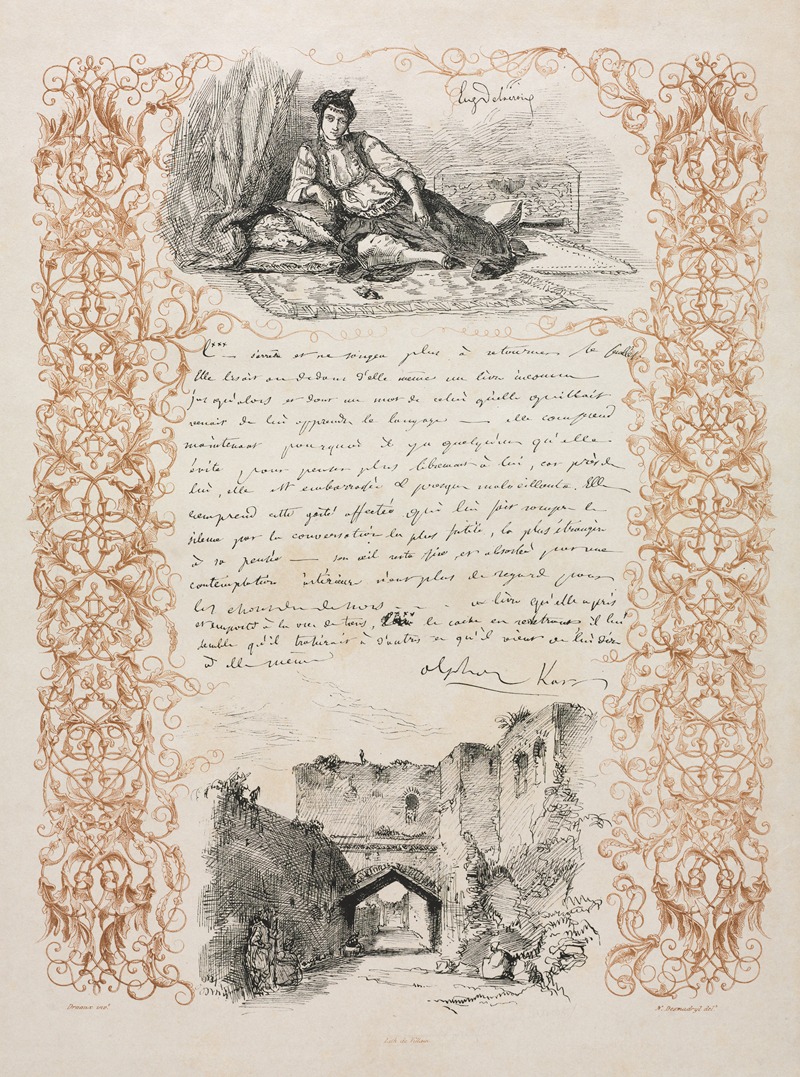 Eug Delacroix
C*** s'arrête et ne songea plus à retourner le feuillet
Elle lisait au dedans d'elle même un livre inconnu
jusqu'alors et dont un mot de celui qu'elle quittait
venait de lui apprendre le langage — elle comprend
maintenant pourquoi il y a quelqu'un qu'elle
évite pour penser plus librement à lui, car près de
lui, elle est embarrassée & presque malveillante. Elle
comprend cette gaité affectée qui lui fait rompre le
silence par la conversation la plus futile, la plus étrangère
à sa pensée — son œil reste fixe et absorbé par une
contemplation intérieure n'ont plus de regard pour
les choses du dehors - - - ce livre qu'elle a pris
et emporté à la vue de tous, le cache en rentrant il lui
semble qu'il trahirait à d'autres ce qu'il vient de lui dire
à elle même
alphonse Karr
Dreaux inv.t
N. Desmadryl del.t
Lith. de Villain